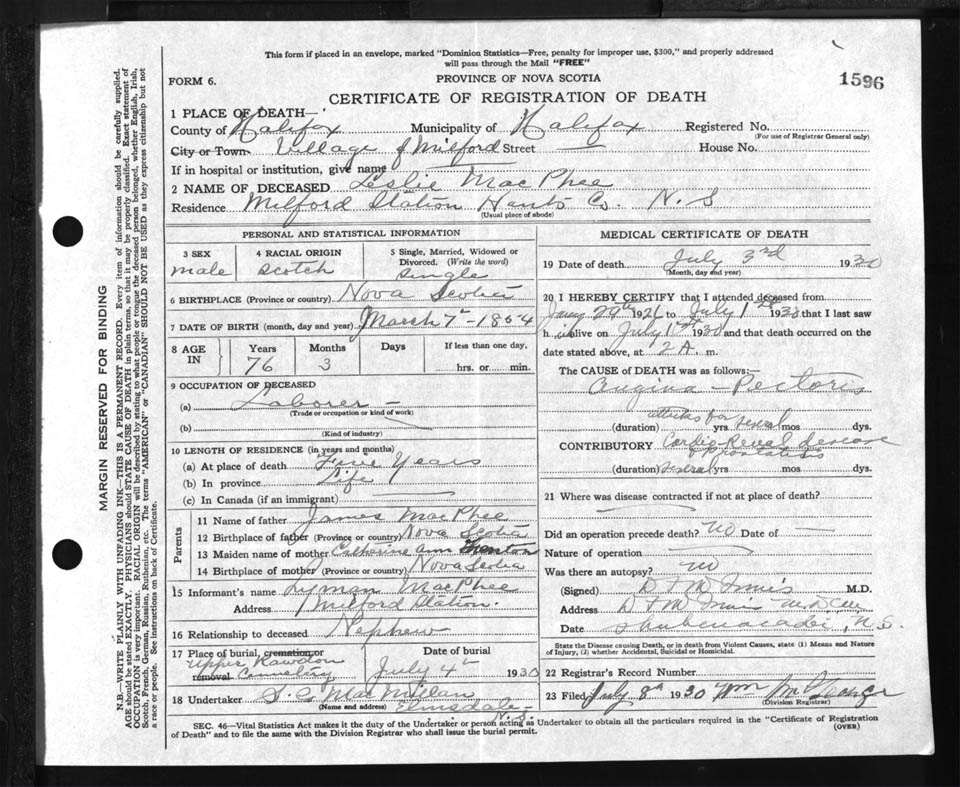 This form if placed in an envelope, marked "Dominion Statistics—Free, penalty for improper use, $300," and properly addressed
will pass through the Mail "FREE"
FORM 6.
PROVINCE OF NOVA SCOTIA
1596
CERTIFICATE OF REGISTRATION OF DEATH
1 PLACE OF DEATH—
County of Halifax Municipality of Halifax Registered No.
(For use of Registrar General only)
City or Town Village of Milford Street — House No.
If in hospital or institution, give name
2 NAME OF DECEASED Leslie MacPhee
Residence Milford Station Hants Co. N. S
(Usual place of abode)
PERSONAL AND STATISTICAL INFORMATION
3 SEX 4 RACIAL ORIGIN 5 Single, Married, Widowed or
Divorced. (Write the word)
male Scotch Single
6 BIRTHPLACE (Province or country) Nova Scotia
7 DATE OF BIRTH (month, day and year) March 7th - 1854
8 AGE IN Years Months Days If less than one day,
76 3 hrs. or min.
9 OCCUPATION OF DECEASED
(a) Laborer —
(Trade or occupation or kind of work)
(b)
(Kind of industry)
10 LENGTH OF RESIDENCE (in years and months)
(a) At place of death Five Years
(b) In province Life
(c) In Canada (if an immigrant)
Parents
11 Name of father James MacPhee
12 Birthplace of father (Province or country) Nova Scotia
13 Maiden name of mother Catherine Ann
14 Birthplace of mother (Province or country) Nova Scotia
15 Informant's name Lyman MacPhee
Address Milford Station.
16 Relationship to deceased Nephew
17 Place of burial, cremation or Date of burial
Upper Rawdon
removal Cemetery July 4th 1930
18 Undertaker S. G MacMillan
(Name and address) Elmsdale
N. S.
MEDICAL CERTIFICATE OF DEATH
19 Date of death July 3rd 1930
(Month, day and year)
20 I HEREBY CERTIFY that I attended deceased from
29th 1926 to July 1st 1930 that I last saw
h im alive on July 1st 1930 and that death occurred on the
date stated above, at 2 A. m.
The CAUSE of DEATH was as follows:—
Angina – Pectoris
attacks for several
(duration) yrs mos dys.
CONTRIBUTORY Cardio Renal disease
(duration) several yrs mos dys.
21 Where was disease contracted if not at place of death?
Did an operation precede death? no Date of —
Nature of operation —
Was there an autopsy? no
(Signed) M.D.
Address
Date Shubenacadie, N.S.
State the Disease causing Death, or in death from Violent Causes, state (1) Means and Nature
of Injury, (2) whether Accidental, Suicidal or Homicidal.
22 Registrar's Record Number
23 Filed July 8th 1930 Wm
(Division Registrar)
SEC. 46—Vital Statistics Act makes it the duty of the Undertaker or person acting as Undertaker to obtain all the particulars required in the "Certificate of Registration
of Death" and to file the same with the Division Registrar who shall issue the burial permit.
(OVER)
MARGIN RESERVED FOR BINDING
N.B.—WRITE PLAINLY WITH UNFADING INK—THIS IS A PERMANENT RECORD. Every item of information should be carefully supplied.
AGE should be stated EXACTLY. PHYSICIANS should STATE CAUSE OF DEATH in plain terms, so that it may be properly classified. Exact statement of
OCCUPATION is very important. RACIAL ORIGIN will be described by stating to what people or tongue the deceased person belonged, whether English, Irish,
Scotch, French, German, Russian, Ruthenian, etc. The terms "AMERICAN" or "CANADIAN" SHOULD NOT BE USED as they express citizenship but not
a race or people. See instructions on back of Certificate.